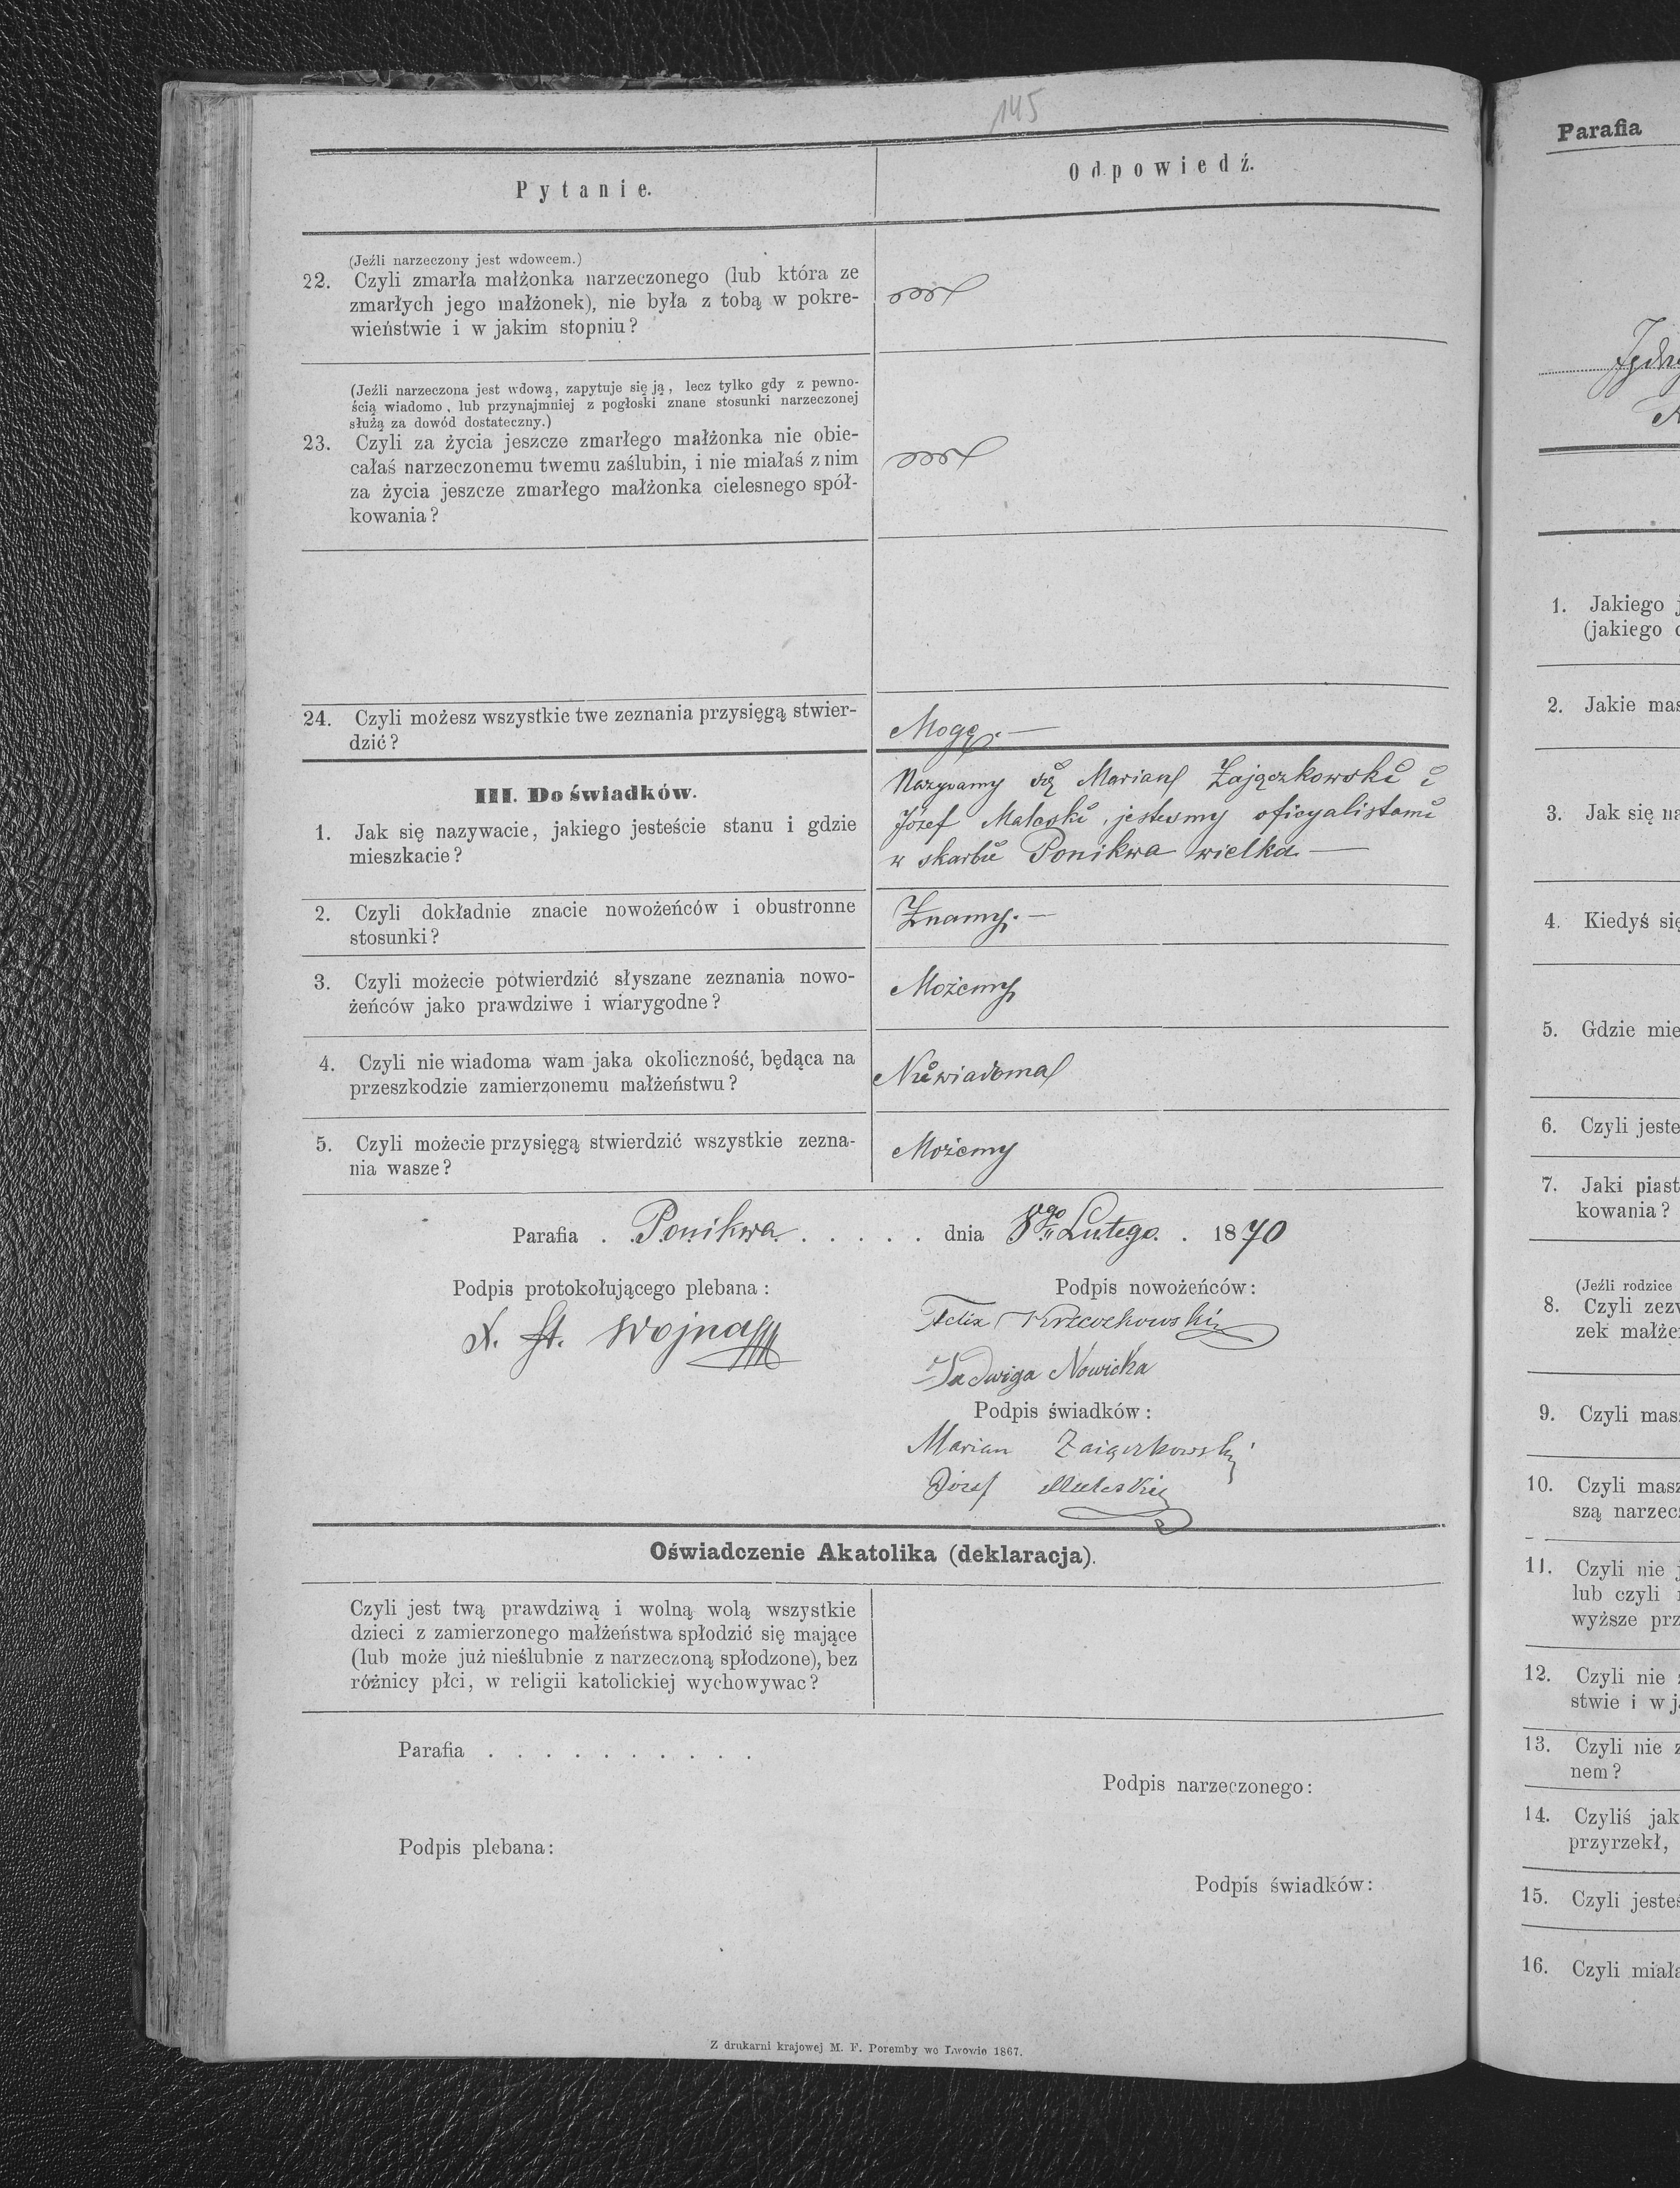 145
Pytanie.
Odpowiedź.
(Jeźli narzeczony jest wdowcem.)
22. Czyli zmarła małżonka narzeczonego (lub która ze
zmarłych jego małżonek), nie była z tobą w pokre-
wieństwie i w jakim stopniu?
(Jeźli narzeczona jest wdową, zapytuje się ją, lecz tylko gdy z pewno-
ścią wiadomo, lub przynajmniej z pogłoski znane stosunki narzeczonej
służą za dowód dostateczny.)
23. Czyli za życia jeszcze zmarłego małżonka nie obie-
całaś narzeczonemu twemu zaślubin, i nie miałaś z nim
za życia jeszcze zmarłego małżonka cielesnego spół-
kowania?
24. Czyli możesz wszystkie twe zeznania przysięgą stwier-
dzić?
Mogę.—
III. Do świadków.
1. Jak się nazywacie, jakiego jesteście stanu i gdzie
mieszkacie?
Nazywamy się Marian Zajączkowski i
Józef Maleski, jestesmy oficyalistami
w skarbie Ponikwa wielka —
2. Czyli dokładnie znacie nowożeńców i obustronne
stosunki?
Znamy.—
3. Czyli możecie potwierdzić słyszane zeznania nowo-
żeńców jako prawdziwe i wiarygodne?
Możemy
4. Czyli nie wiadoma wam jaka okoliczność, będąca na
przeszkodzie zamierzonemu małżeństwu?
Niewiadoma
5. Czyli możecie przysięgą stwierdzić wszystkie zezna-
nia wasze?
Możemy
Parafia . Ponikwa . . . . . dnia 8go Lutego . 1870
Podpis protokołującego plebana:
Podpis nowożeńców:
X. St. Wojna
Felix
Jadwiga Nowicka
Podpis świadków:
Marian Zaiączkowski
Józef Maleski
Oświadczenie Akatolika (deklaracja).
Czyli jest twą prawdziwą i wolną wolą wszystkie
dzieci z zamierzonego małżeństwa spłodzić się mające
(lub może już nieślubnie z narzeczoną spłodzone), bez
różnicy płci, w religii katolickiej wychowywac?
Parafia . . . . . . . . . .
Podpis narzeczonego:
Podpis plebana:
Podpis świadków:
Z drukarni krajowej M. F. Poremby we Lwowie 1867.
Parafia
1. Jakiego j
(jakiego
2. Jakie mas
3. Jak się na
4. Kiedyś się
5. Gdzie mie
6. Czyli jeste
7. Jaki piast
kowania?
(Jeźli rodzice
8. Czyli zezw
zek małże
9. Czyli mas
10. Czyli masz
szą narzec
11. Czyli nie j
lub czyli
wyższe prz
12. Czyli nie
stwie i w j
13. Czyli nie z
nem?
14. Czyliś jak
przyrzekł,
15. Czyli jesteś
16. Czyli miała